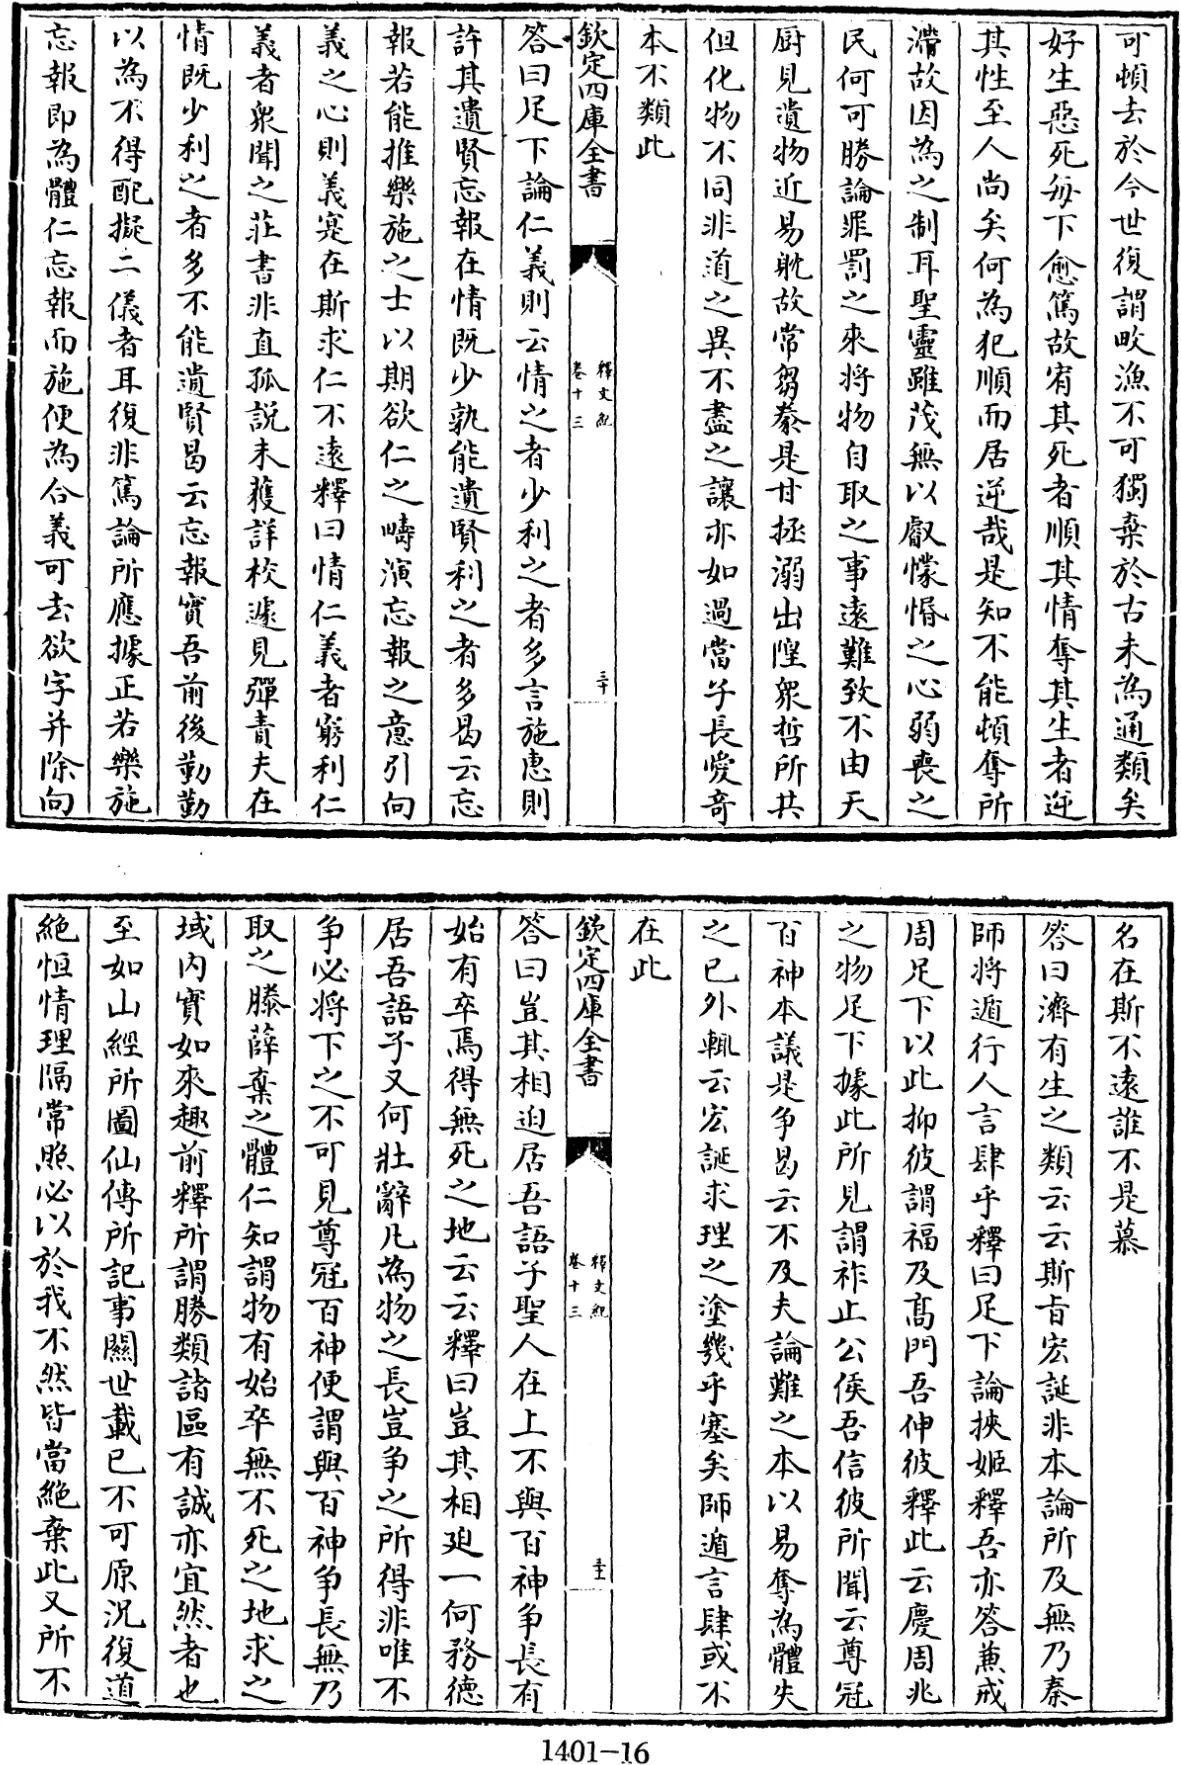 可頓去於今世復謂畋漁不可獨棄於古未為通類矣
好生惡死每下愈篤故宥其死者順其情奪其生者逆
其性至人尚矣何為犯順而居逆哉是知不能頓奪所
滯故因為之制耳聖靈雖茂無以叡懞惛之心弱喪之
民何可勝論罪罰之來將物自取之事遠難致不由天
厨見遺物近易耽故常芻豢是甘拯溺出隍衆哲所共
但化物不同非道之異不盡之讓亦如過當子長愛奇
本不類此
欽定四庫全書
釋文紀
卷十三
三十
答曰足下論仁義則云情之者少利之者多言施惠則
許其遺賢忘報在情既少孰能遺賢利之者多曷云忘
報若能推樂施之士以期欲仁之疇演忘報之意引向
義之心則義寔在斯求仁不遠釋曰情仁義者寡利仁
義者衆聞之莊書非直孤說未獲詳校遽見彈責夫在
情既少利之者多不能遺賢曷云忘報實吾前後勤勤
以為不得配擬二儀者耳復非篤論所應據正若樂施
忘報即為體仁忘報而施便為合義可去欲字并除向
名在斯不遠誰不是慕
答曰濟有生之類云云斯旨宏誕非本論所及無乃秦
師將遁行人言肆乎釋曰足下論挾姬釋吾亦答兼戒
周足下以此抑彼謂福及高門吾伸彼釋此云慶周兆
之物足下據此所見謂祚止公侯吾信彼所聞云尊冠
百神本議是爭曷云不及夫論難之本以易奪為體失
之已外輒云宏誕求理之塗幾乎塞矣師遁言肆或不
在此
欽定四庫全書
釋文紀
卷十三
答曰豈其相迫居吾語子聖人在上不與百神爭長有
始有卒焉得無死之地云云釋曰豈其相迫一何務德
居吾語子又何壯辭凡為物之長豈爭之所得非唯不
爭必將下之不可見尊冠百神便謂與百神爭長無乃
取之滕薛棄之體仁知謂物有始卒無不死之地求之
域內實如來趣前釋所謂勝類諸區有誠亦宜然者也
至如山經所圖仙傳所記事關世載已不可原況復道
絕恒情理隔常照必以於我不然皆當絕棄此又所不
1401-16